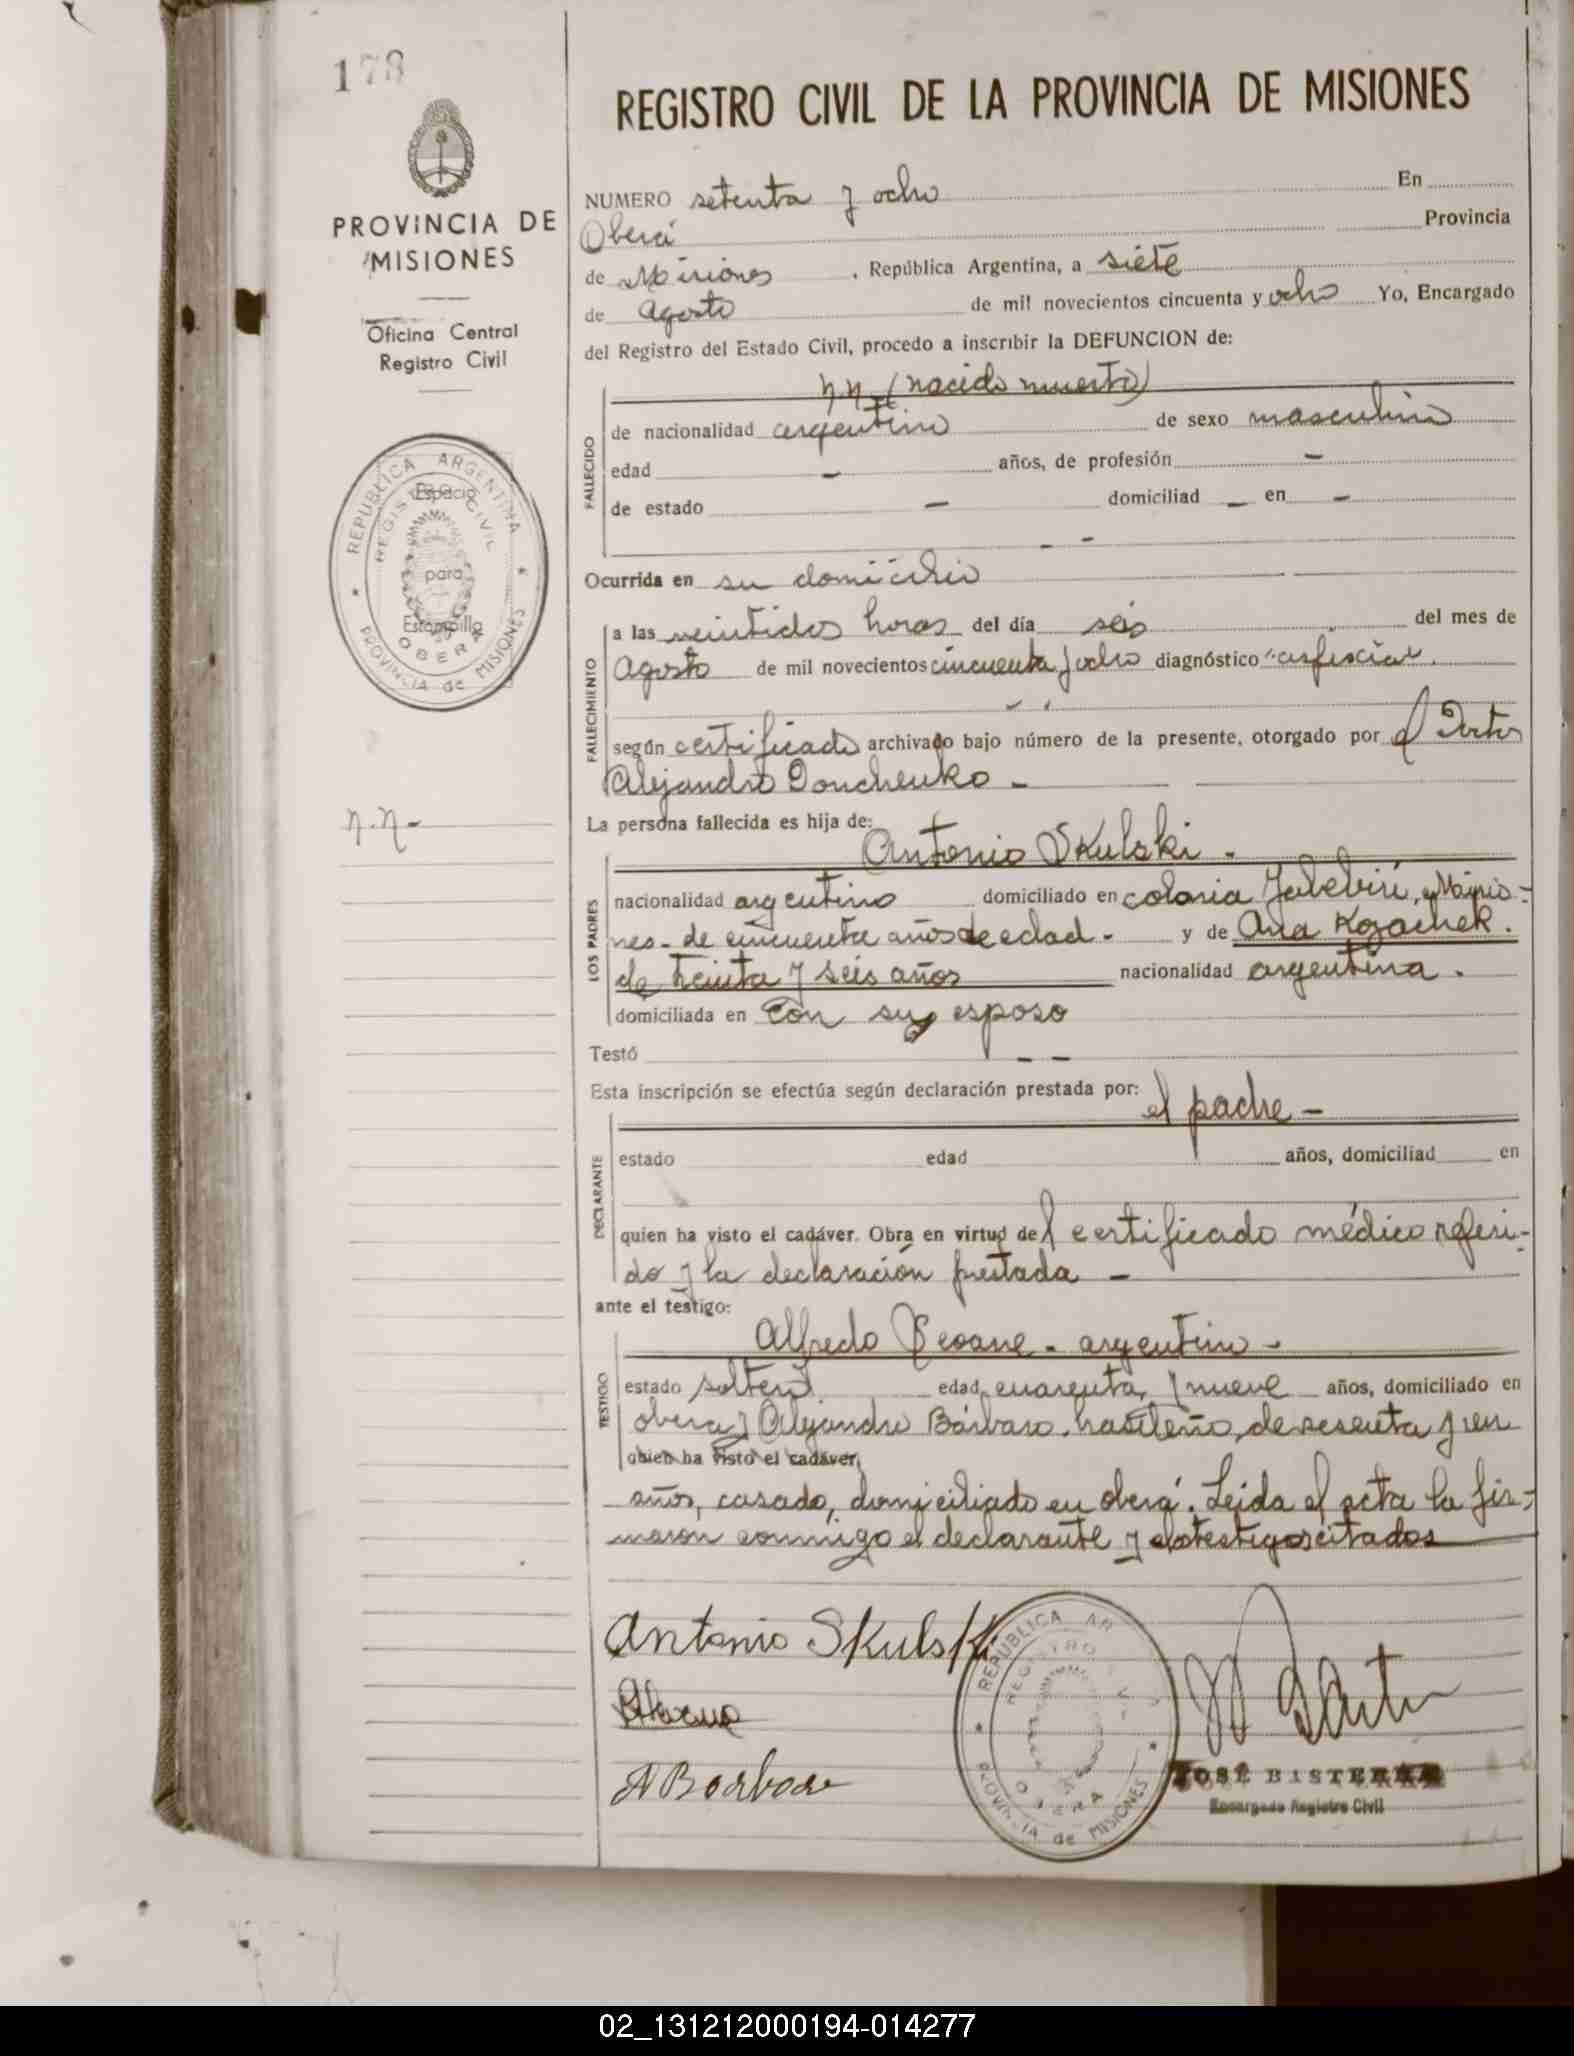 178
PROVINCIA DE
MISIONES
Oficina Central
Registro Civil
REPUBLICA ARGENTINA
REGISTRO CIVIL
Espacio
para
Estampilla
OBERA
PROVINCIA de MISIONES
n.n.-
REGISTRO CIVIL DE LA PROVINCIA DE MISIONES
NUMERO setenta y ocho En
Oberá Provincia
de Misiones, República Argentina, a siete
de Agosto de mil novecientos cincuenta y ocho Yo, Encargado
del Registro del Estado Civil, procedo a inscribir la DEFUNCION de:
n.n. (nacido muerto)
FALLECIDO
de nacionalidad argentino de sexo masculino
edad - años, de profesión -
de estado - domiciliad - en -
- -
Ocurrida en su domicilio
FALLECIMIENTO
a las veintidos horas del día seis del mes de
Agosto de mil novecientos cincuenta y ocho diagnóstico "asfixia"
según certificado archivado bajo número de la presente, otorgado por el Doctor
Alejandro Donchenko -
La persona fallecida es hija de:
Antonio Skulski -
LOS PADRES
nacionalidad argentino domiciliado en colonia Yabebirí, Misio-
nes - de cincuenta años de edad - y de Ana Kozachek.
de treinta y seis años nacionalidad argentina.
domiciliada en con su esposo
Testó - -
Esta inscripción se efectúa según declaración prestada por:
el padre -
DECLARANTE
estado edad años, domiciliad en
quien ha visto el cadáver. Obra en virtud del certificado médico referi-
do y la declaración prestada -
ante el testigo:
Alfredo Seoane - argentino -
TESTIGO
estado soltero edad cuarenta y nueve años, domiciliado en
obera y Alejandro Bárbaro, brasileño, de sesenta y un
quien ha visto el cadáver,
años, casado, domiciliado en oberá. Leida el acta la fir-
maron conmigo el declarante y los testigos citados
Antonio Skulski
A Barbaro
REPUBLICA AR
REGISTRO
OBERA
PROVINCIA de MISIONES
JOSÉ
Encargado Registro Civil
02_131212000194-014277